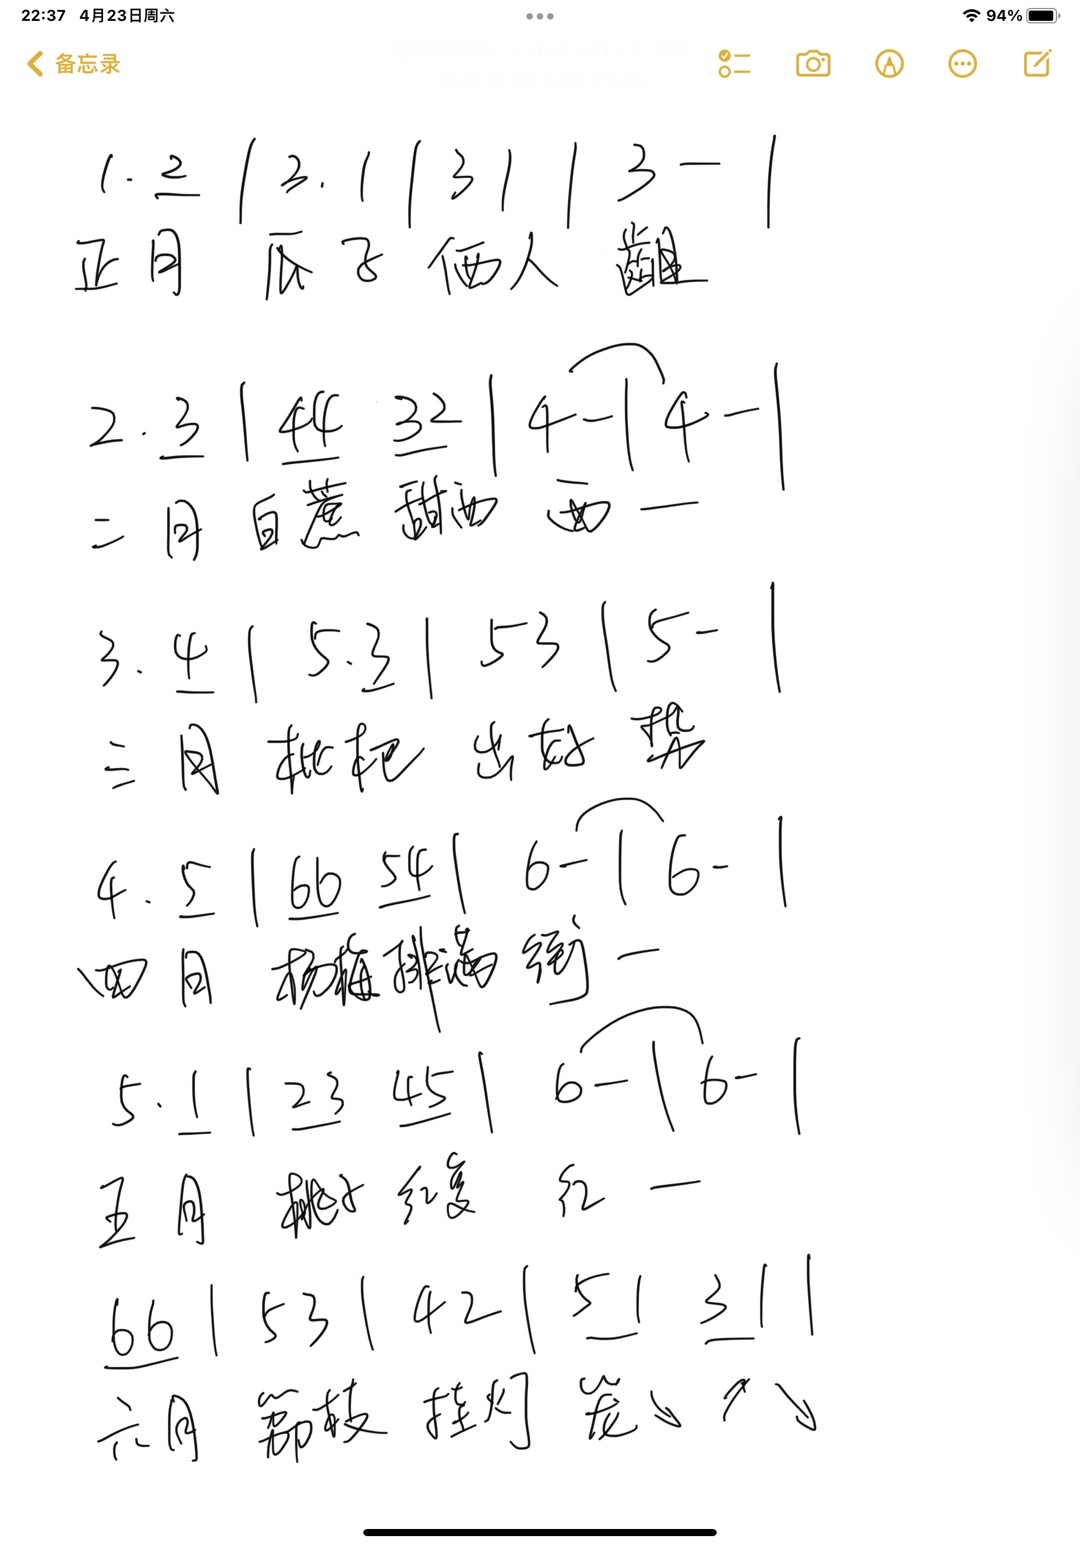 22:37 4月23日周六 94%
备忘录
1. 2 | 3. 1 | 3 1 | 3 — |
正月 瓜子 俩人 齟
2. 3 | 44 32 | 4 — | 4 — |
二月 白蔗 甜西 西 —
3. 4 | 5. 3 | 53 | 5 — |
三月 枇杷 出好 势
4. 5 | 66 54 | 6 — | 6 — |
四月 杨梅 排满 街 —
5. 1 | 23 45 | 6 — | 6 — |
五月 桃子 红复 红 —
66 | 53 | 42 | 51 31 |
六月 荔枝 挂灯 笼 ↘ ↗ ↘